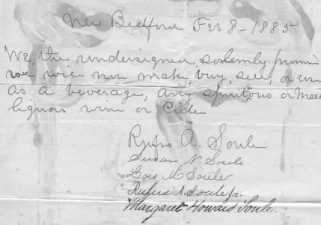 New Bedford Feb 8 - 1885
We the undersigned, solemly promise
we will not make, buy, sell, or use
as a beverage, any spiritous or malt
liquors wine or Cider
Rufus A. Soule
Susan N Soule
Lois M Soule
Rufus A Soule jr.
Margaret Howard Soule.